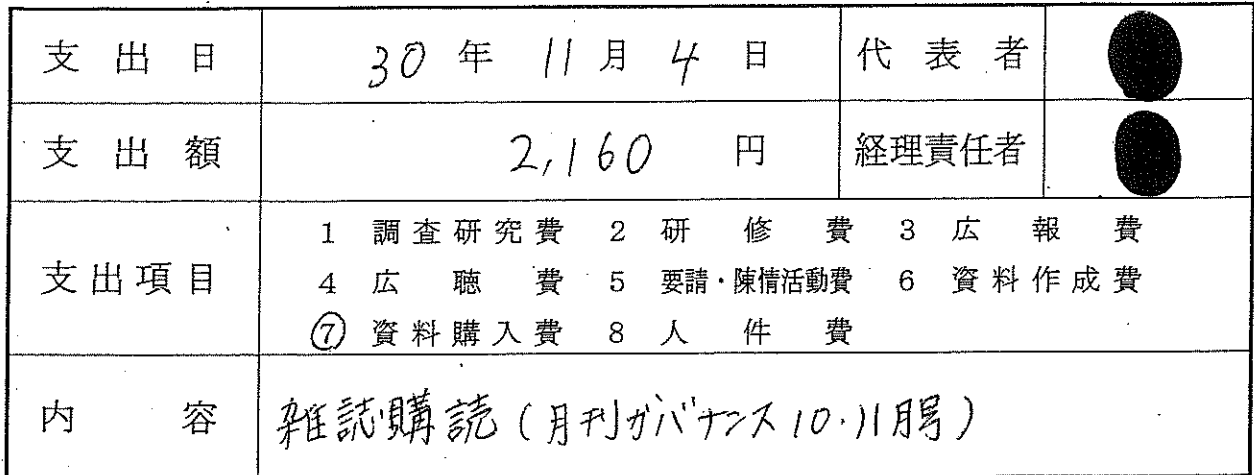 支出日 30年11月4日 代表者
支出額 2,160円 経理責任者
支出項目 1 調査研究費 2 研修費 3 広報費
4 広聴費 5 要請・陳情活動費 6 資料作成費
⑦ 資料購入費 8 人件費
内容 雑誌購読(月刊ガバナンス10・11月号)